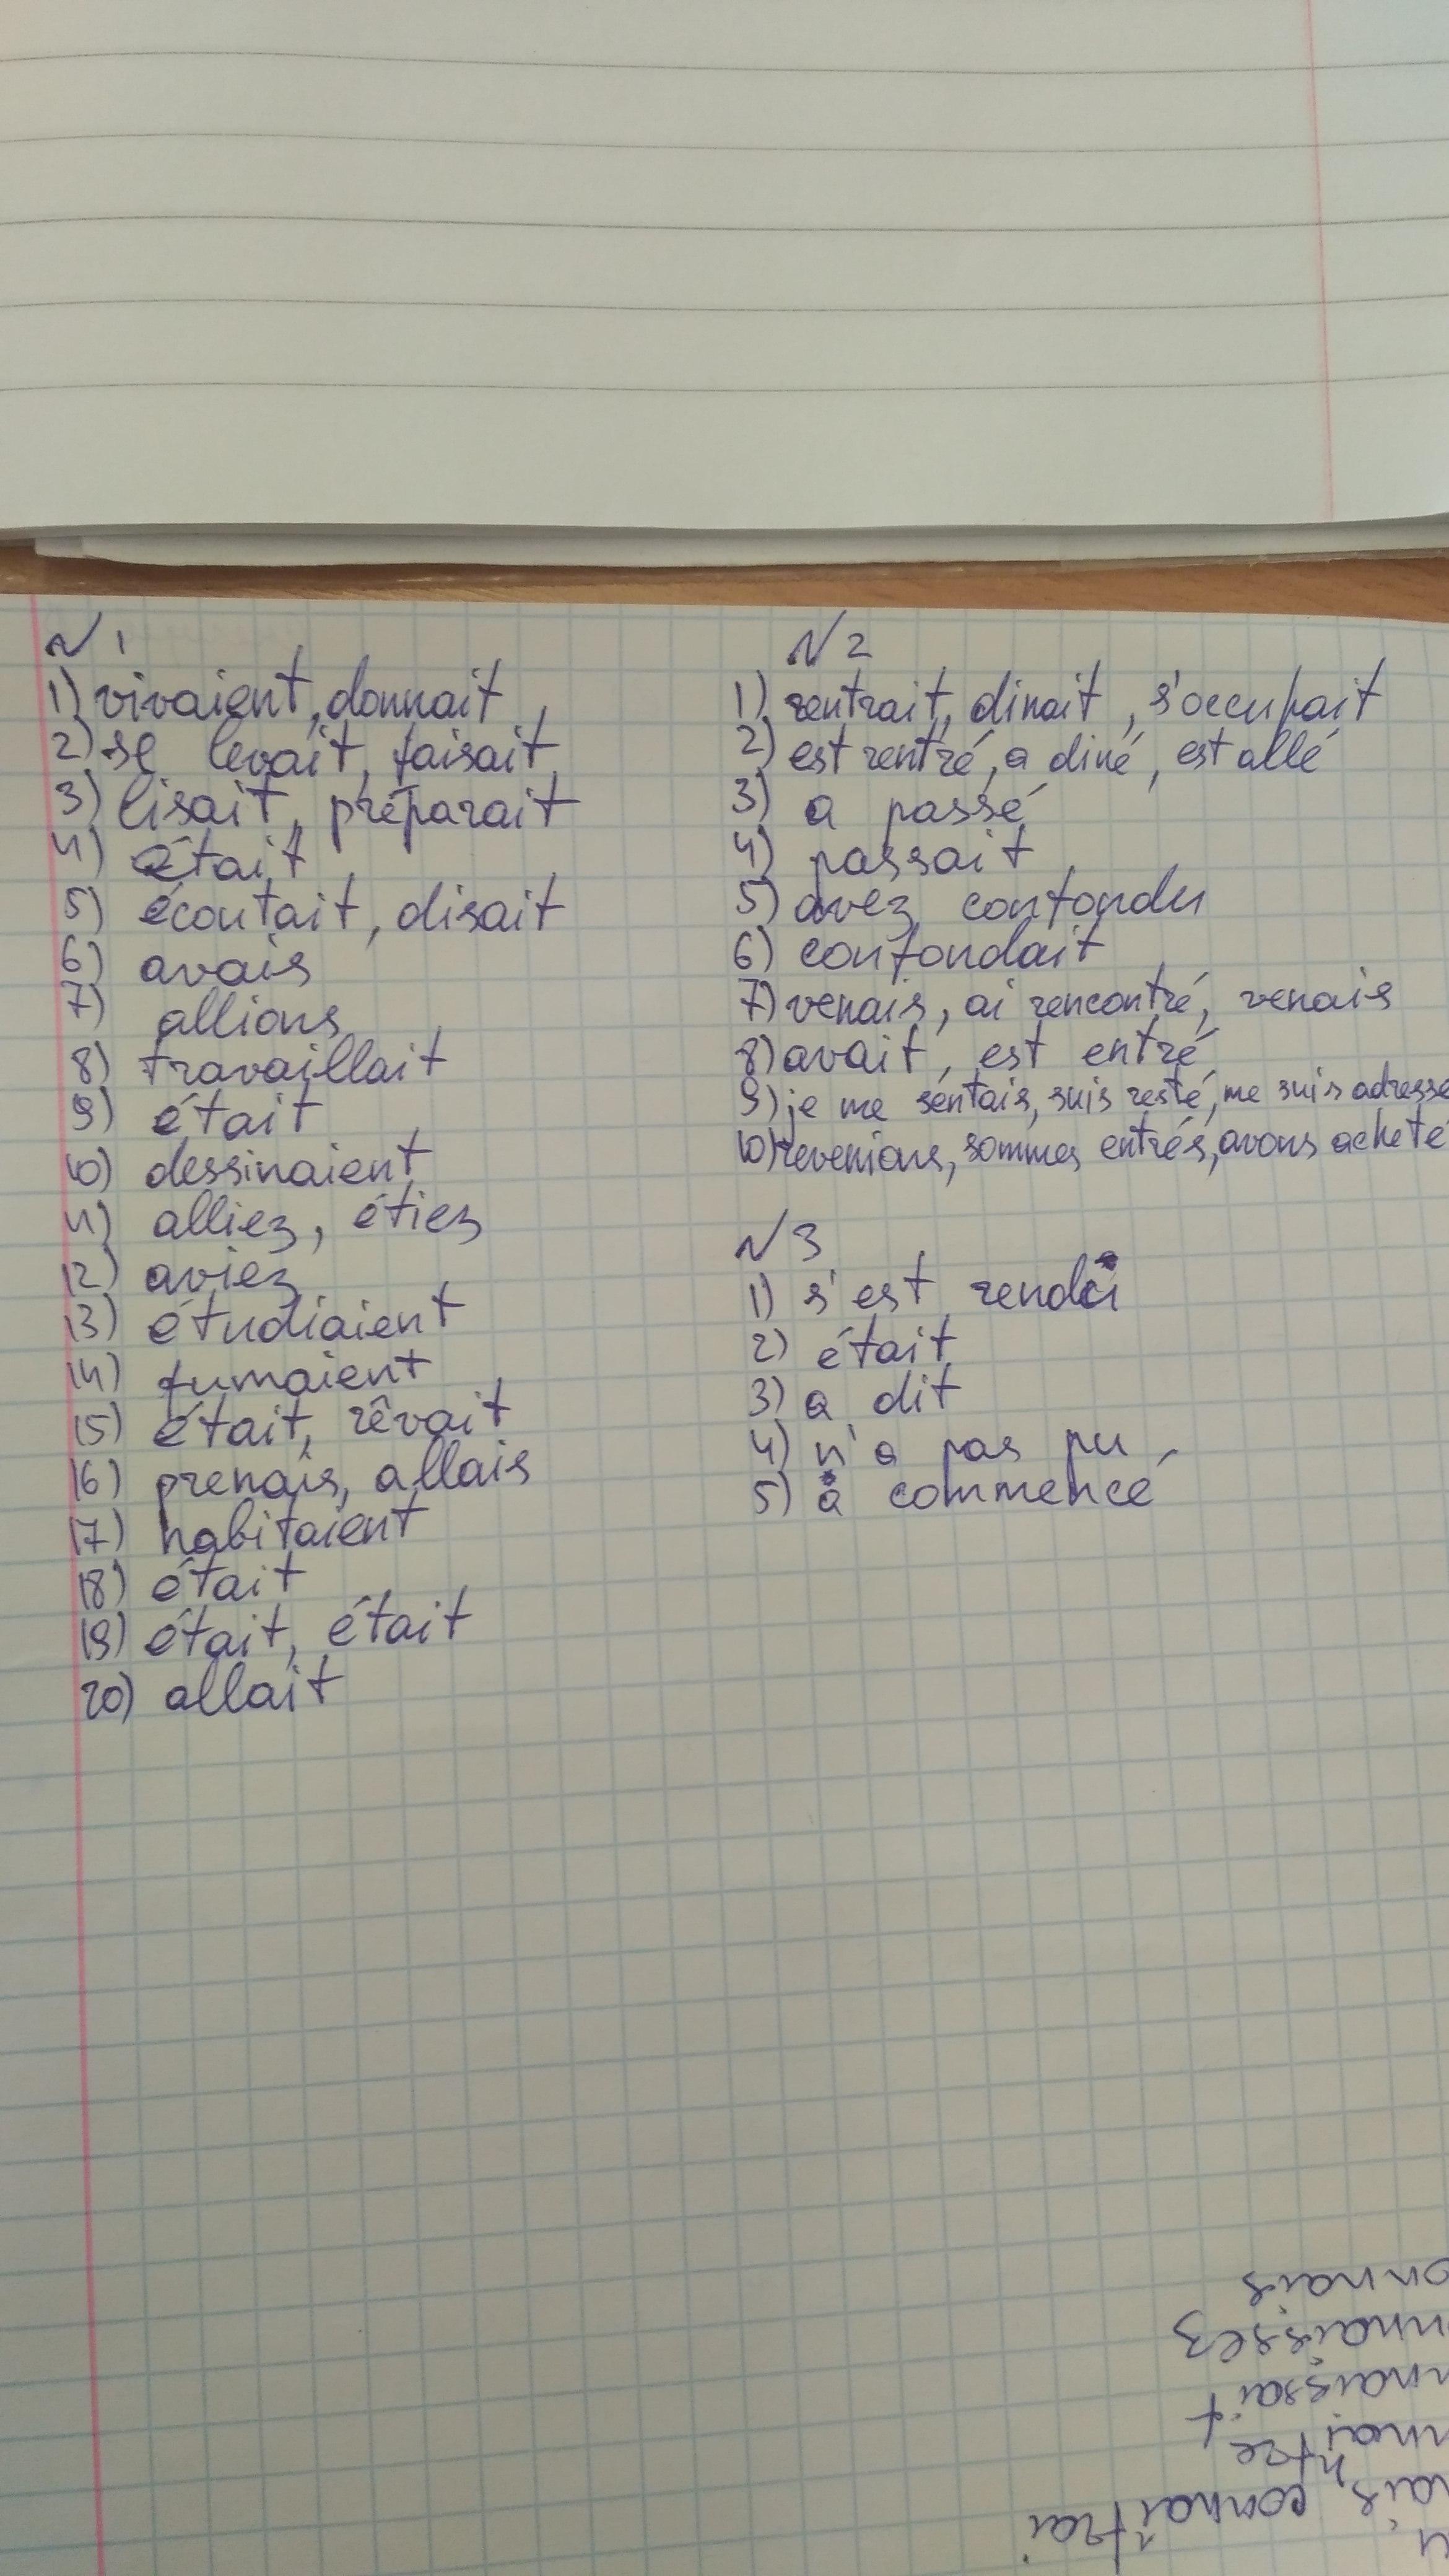 N 1
1) vivaient, donnait
2) se levait, faisait
3) lisait, préparait
4) était
5) écoutait, disait
6) avais
7) allions
8) travaillait
9) était
10) dessinaient
11) alliez, étiez
12) aviez
13) étudiaient
14) fumaient
15) était, rêvait
16) prenais, allais
17) habitaient
18) était
19) était, était
20) allait
N 2
1) rentrait, dinait, s'occupait
2) est rentré, a diné, est allé
3) a passé
4) passait
5) avez confondu
6) confondait
7) venais, ai rencontré, venais
8) avait, est entré
9) je me sentais, suis resté, me suis adressé
10) revenions, sommes entrés, avons acheté
N 3
1) s'est
2) était
3) a dit
4) n'a pas pu
5) a commencé
connaitrai